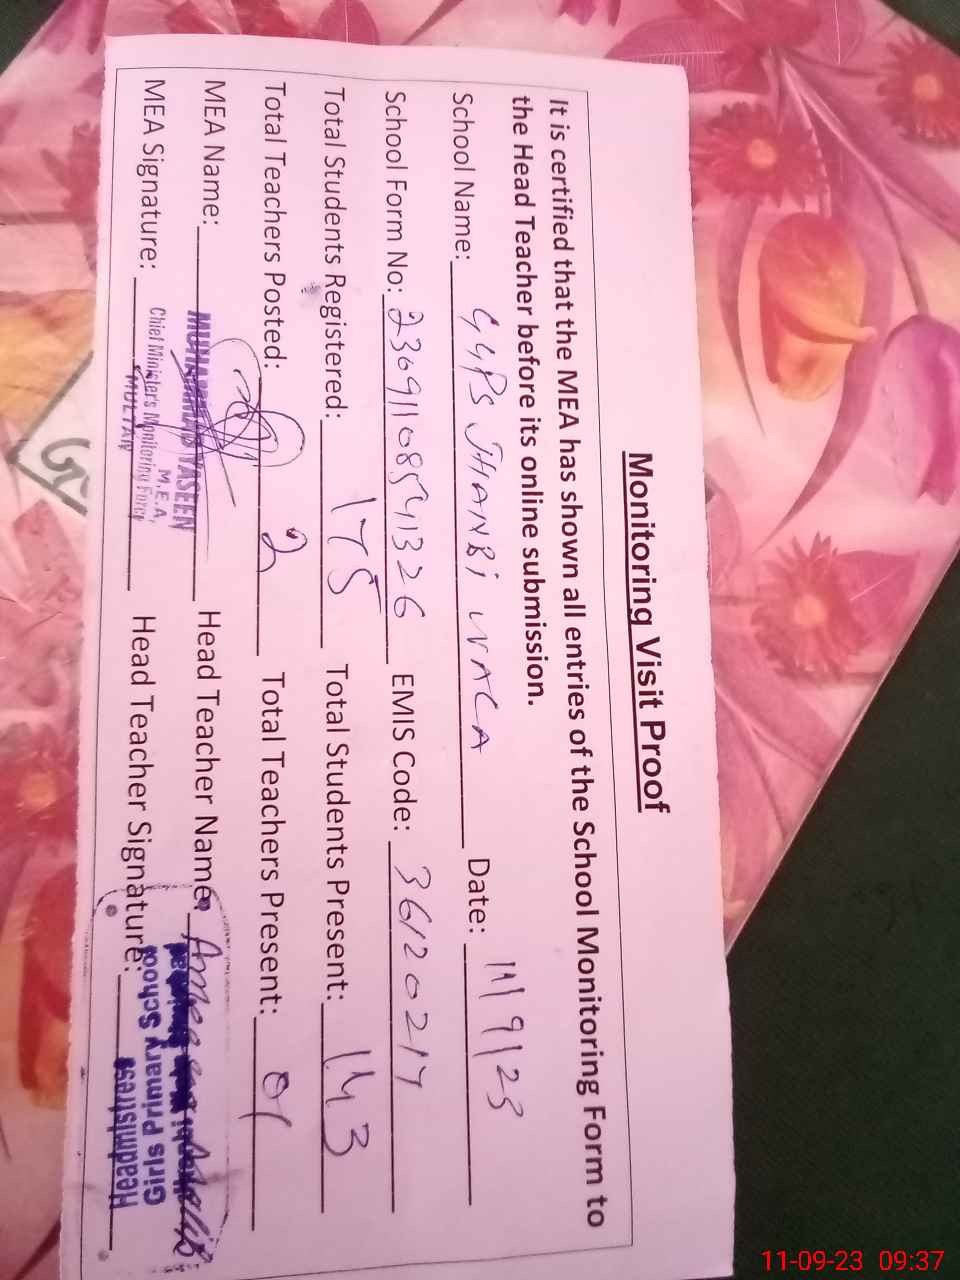 Monitoring Visit Proof
It is certified that the MEA has shown all entries of the School Monitoring Form to
the Head Teacher before its online submission.
School Name: GGPS JHANBi WALA Date: 11/9/23
School Form No: 23691108541326 EMIS Code: 36120217
Total Students Registered: 175 Total Students Present: 143
Total Teachers Posted: 2 Total Teachers Present: 01
MEA Name: MUHAMMAD YASEEN Head Teacher Name:
M.E.A,
MEA Signature: Chief Minister's Monitoring Force Head Teacher Signature:
MULTAN
Headmistress
Girls Primary School
11-09-23 09:37